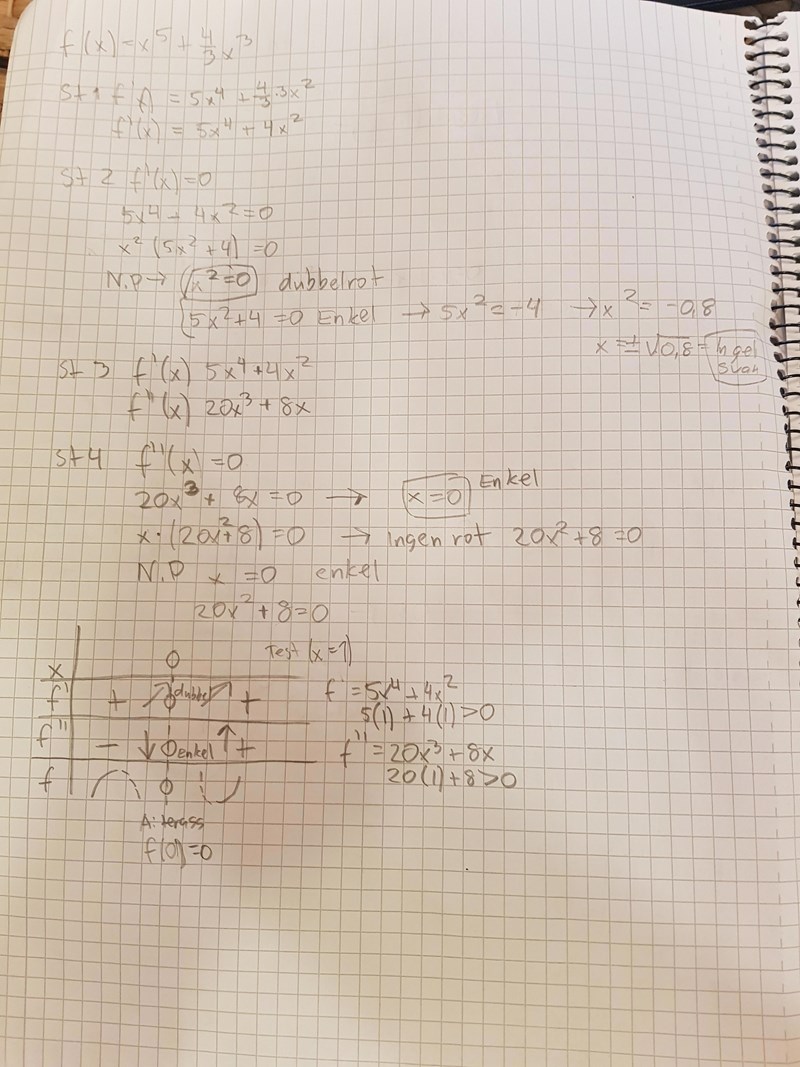 f(x) = x⁵ + 4/3 x³
St 1 f'(x) = 5x⁴ + 4/3·3x²
f'(x) = 5x⁴ + 4x²
St 2 f'(x) = 0
5x⁴ + 4x² = 0
x² (5x² + 4) = 0
N.P → x² = 0 dubbelrot
5x² + 4 = 0 Enkel → 5x² = -4 → x² = -0,8
x = ± √0,8 = Ingel svar
St 3 f'(x) 5x⁴ + 4x²
f''(x) 20x³ + 8x
St 4 f''(x) = 0
20x³ + 8x = 0 → x = 0 Enkel
x · (20x² + 8) = 0 → Ingen rot 20x² + 8 = 0
N.P x = 0 enkel
20x² + 8 = 0
x 0 Test (x = 1)
f' + 0 dubbel + f' = 5x⁴ + 4x²
5(1) + 4(1) > 0
f'' - ↓ 0 enkel ↑ + f'' = 20x³ + 8x
20(1) + 8 > 0
f 0
A: terass
f(0) = 0